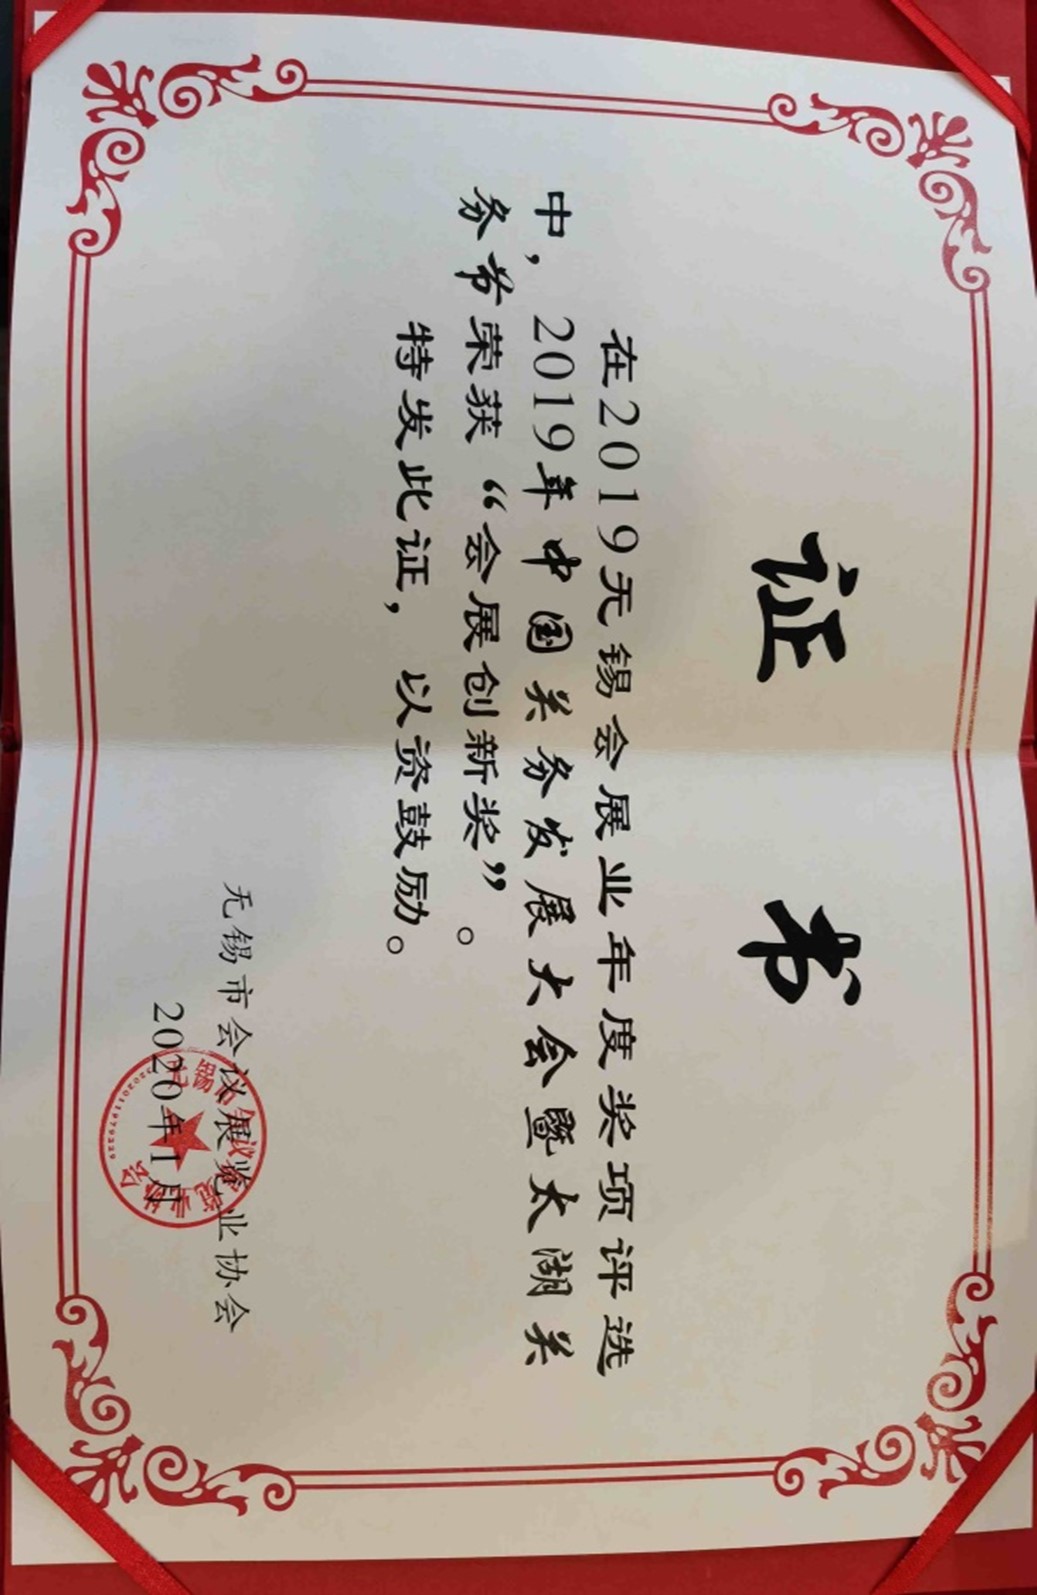 证 书
在2019无锡会展业年度奖项评选
中，2019年中国关务发展大会暨太湖关
务节荣获“会展创新奖”。
特发此证，以资鼓励。
无锡市会议展览业协会
2020年1月
无锡市会议展览业协会